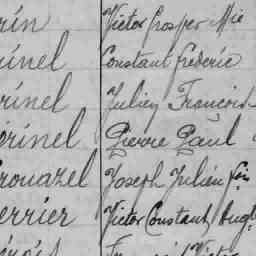 rin Victor Prosper Mie
rinel Constant Frédéric
rinel Julien François
rinel Pierre Paul
rouazel Joseph Julien fois
errier Victor Constant, Aug